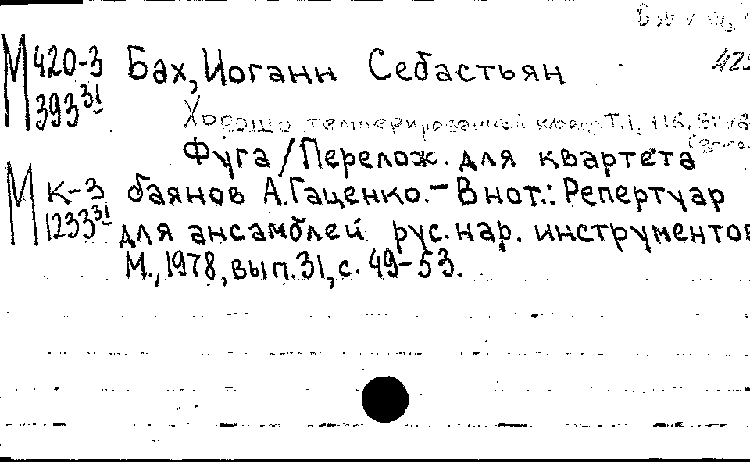 М 420-3 Бах, Иоганн Себастьян
393 31
Хорошо темперированный клав. Т.1,
Фуга / Перелож. для квартета
М К-3 баянов А. Гаценко. – В нот.: Репертуар
1233 31 для ансамблей рус. нар. инструментов
М., 1978, вып. 31, с. 49-53.